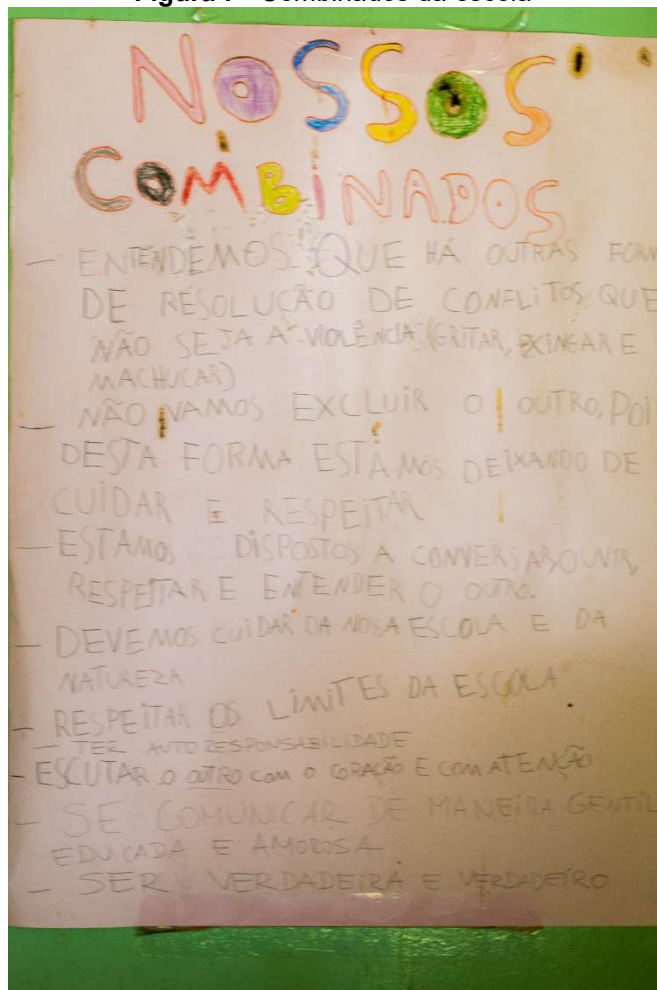 Combinados da escola
NOSSOS
COMBINADOS
- ENTENDEMOS QUE HÁ OUTRAS FORM
DE RESOLUÇÃO DE CONFLITOS QUE
NÃO SEJA A VIOLÊNCIA (GRITAR, XINGAR E
MACHUCAR)
- NÃO VAMOS EXCLUIR O OUTRO, POI
DESTA FORMA ESTAMOS DEIXANDO DE
CUIDAR E RESPEITAR
- ESTAMOS DISPOSTOS A CONVERSAR, OUVIR,
RESPEITAR E ENTENDER O OUTRO.
- DEVEMOS CUIDAR DA NOSSA ESCOLA E DA
NATUREZA
- RESPEITAR OS LIMITES DA ESCOLA
- TER AUTO RESPONSABILIDADE
- ESCUTAR O OUTRO COM O CORAÇÃO E COM ATENÇÃO
- SE COMUNICAR DE MANEIRA GENTIL
EDUCADA E AMOROSA
- SER VERDADEIRA E VERDADEIRO